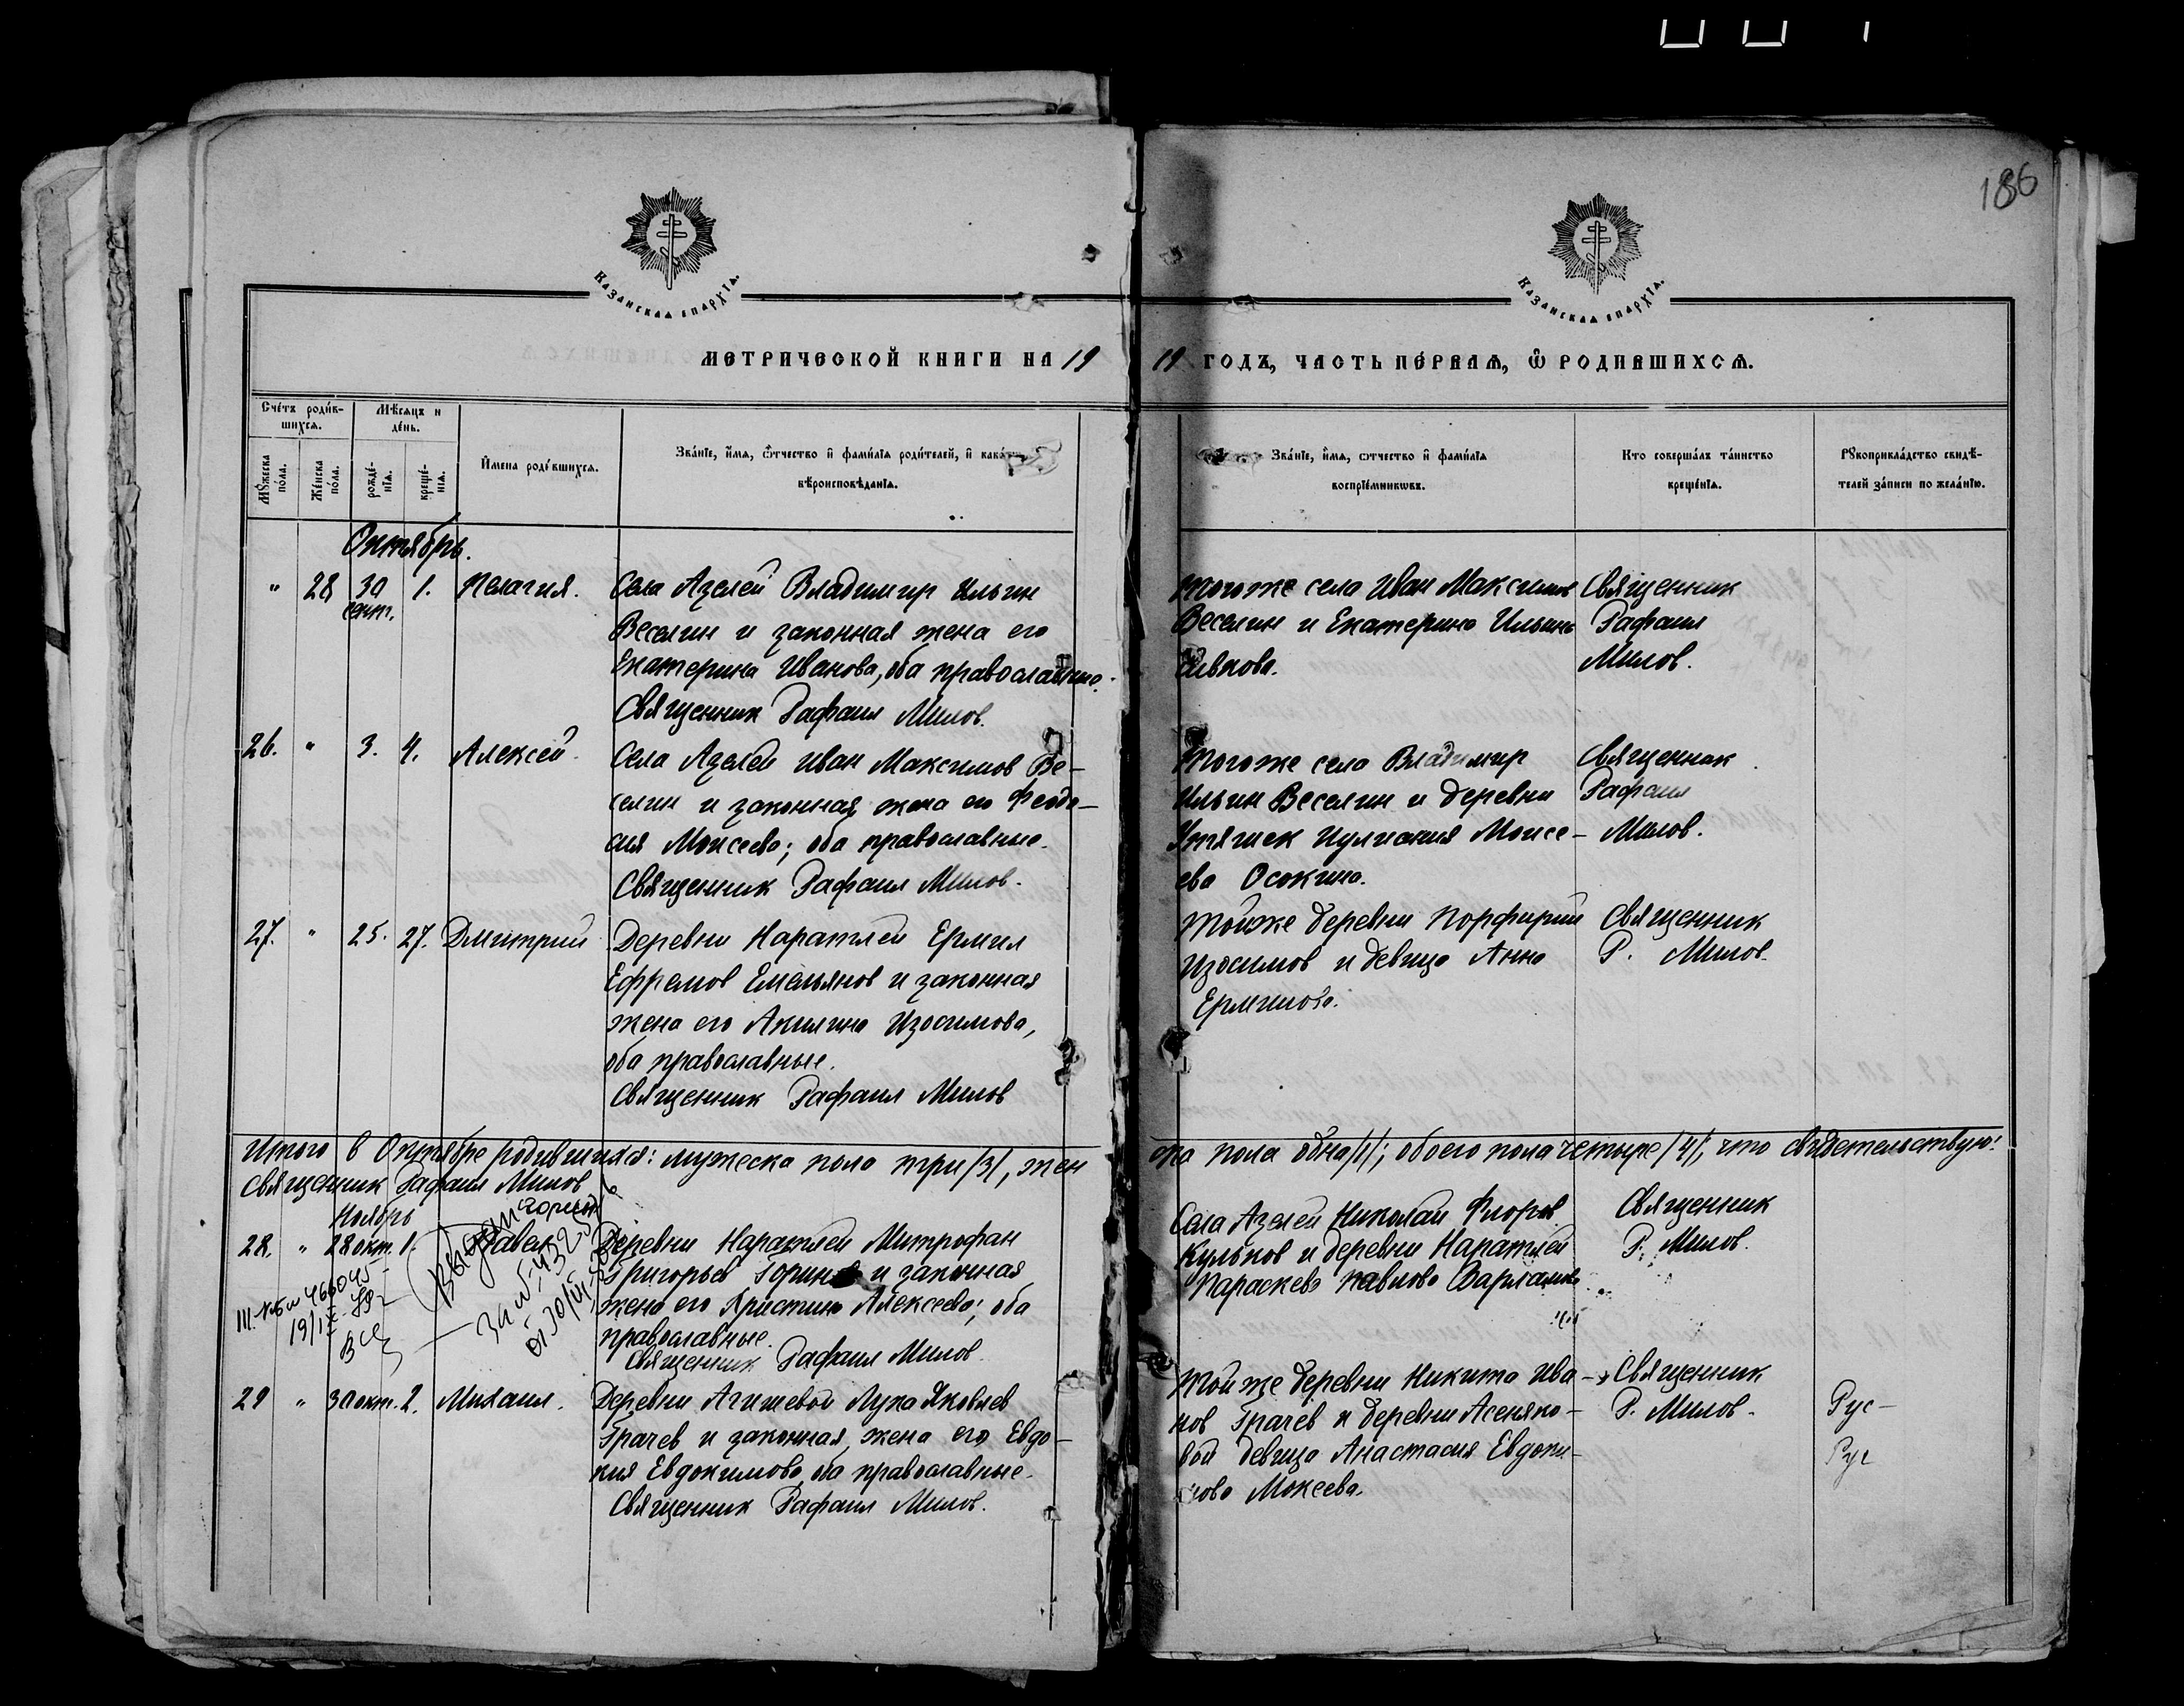 186
Казанская епархїа.
Казанская епархїа.
МЕТРИЧЕСКОЙ КНИГИ НА 19 19 ГОДЪ, ЧАСТЬ ПЕ́РВАЯ, Ѿ РОДИВШИХСЯ.
Сче́тъ роди́в-
шихся.
Мѣ́сяцъ и
де́нь.
Мꙋ́жеска
по́ла.
Же́нска
по́ла.
рожде́-
нїя.
креще́-
нїя.
И҆мена роди́вшихся.
Зва́нїе, и҆́мя, ѻ҆́тчество и҆ фами́лїя роди́телей, и҆
вѣроисповѣ́данїя.
Зва́нїе, и҆́мя, ѻ҆́тчество и҆ фами́лїя
воспрїе́мникѡвъ.
Кто соверша́лъ та́инство
креще́нїя.
Рꙋкоприкла́дство свидѣ́-
телей за́писи по жела́нїю.
Октябрь.
" 28 30 сент. 1. Пелагия.
Села Азелей Владимир Ильин
Веселин и законная жена его
Екатерина Иванова, оба православные.
Священник Рафаил Милов.
Тогоже села Иван Максимов
Веселин и Екатерина Ильина
Священник
Рафаил
Милов.
26. " 3. 4. Алексей.
Села Азелей Иван Максимов Ве-
селин и законная жена его Феодо-
сия Моисеева; оба православные.
Священник Рафаил Милов.
Тогоже села Владимир
Ильин Веселин и деревни
Утяшек Иулиания Моисе-
ева Осокина.
Священник
Рафаил
Милов.
27. " 25. 27. Дмитрий
Деревни Наратлей Ермил
Ефремов Емельянов и законная
жена его Акилина Изосимова,
оба православные.
Священник Рафаил Милов
Тойже деревни Порфирий
Изосимов и девица Анна
Ермилова.
Священник
Р. Милов.
Итого в Октябре родившихся: мужеска пола три /3/, жен
ска пола одна /1/; обоего пола четыре /4/, что свидетельствую:
Священник Рафаил Милов
Ноябрь
28. " 28 окт. 1. Павел
Деревни Наратлей Митрофан
Григорьев Горин и законная
жена его Христина Алексеева; оба
православные.
Священник Рафаил Милов.
Села Азелей Николай Флоров
Кульков и деревни Наратлей
Параскева Павлова Варламова.
Священник
Р. Милов.
29 " 30 окт. 2. Михаил.
Деревни Агишевой Лука Яковлев
Грачев и законная жена его Евдо-
кия Евдокимова, оба православные.
Священник Рафаил Милов.
Той же деревни Никита Ива-
нов Грачев и деревни Асеняко-
вой девица Анастасия Евдоки-
мова Мокеева.
Священник
Р. Милов.
Рус-
Рус